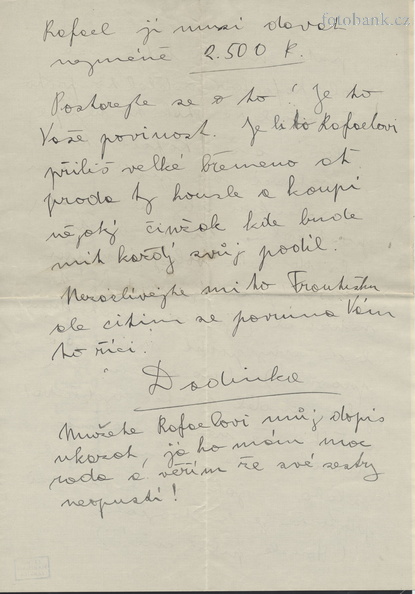 fotobank.cz
Rafael jí musí dávat
nejméně 2.500 K.
Postarejte se o to! Je to
Vaše povinost. Je li to Rafaelovi
příliš velké břemeno ať
prodá ty housle a koupí
nějaký činžák kde bude
mít každý svůj podíl.
Nezazlívejte mi to Františku
ale cítím se povinna Vám
to říci.
Dadinka
Můžete Rafaelovi můj dopis
ukázat, já ho mám moc
ráda a věřím že své sestry
neopustí!